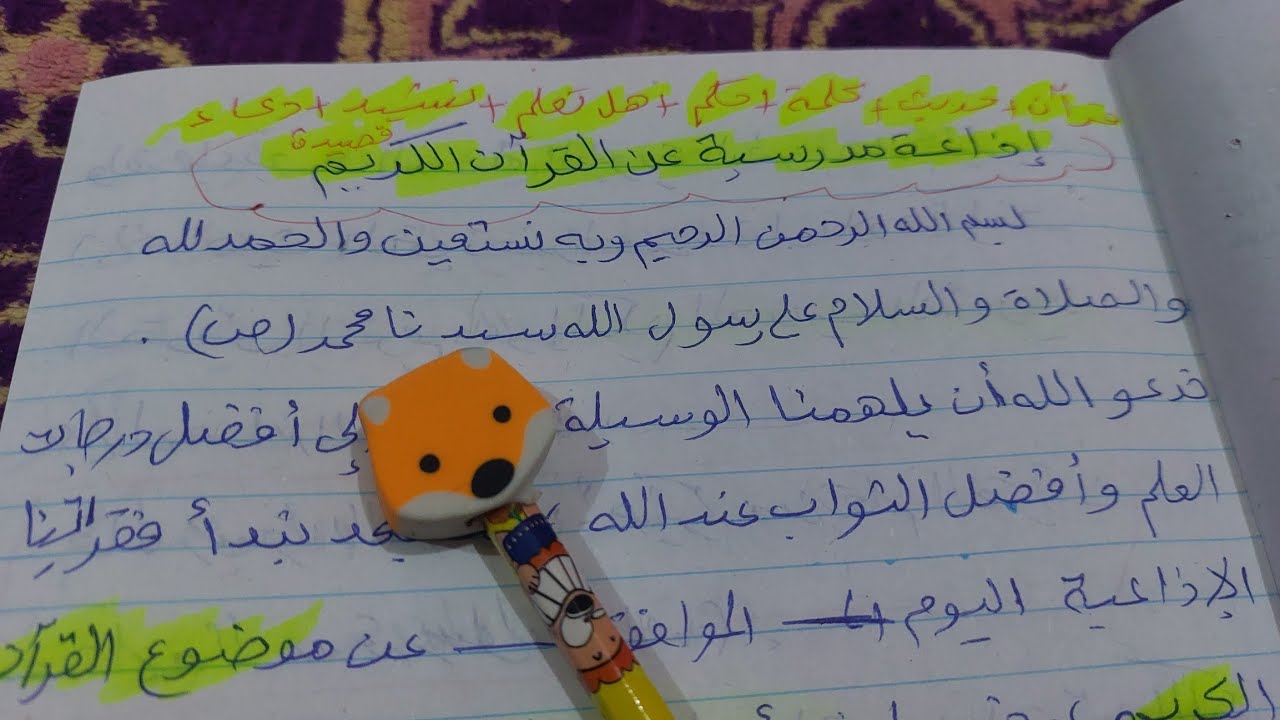 قرآن + حديث + كلمة + حكم + هل تعلم + نشيد + دعاء
قصيدة
إذاعة مدرسية عن القرآن الكريم
بسم الله الرحمن الرحيم وبه نستعين والحمد لله
والصلاة والسلام على رسول الله سيدنا محمد (ص) .
ندعو الله أن يلهمنا الوسيلة إلى أفضل درجات
العلم وأفضل الثواب عند الله بعد نبدأ فقراتنا
الإذاعية اليوم الموافق عن موضوع القرآن
الكريم